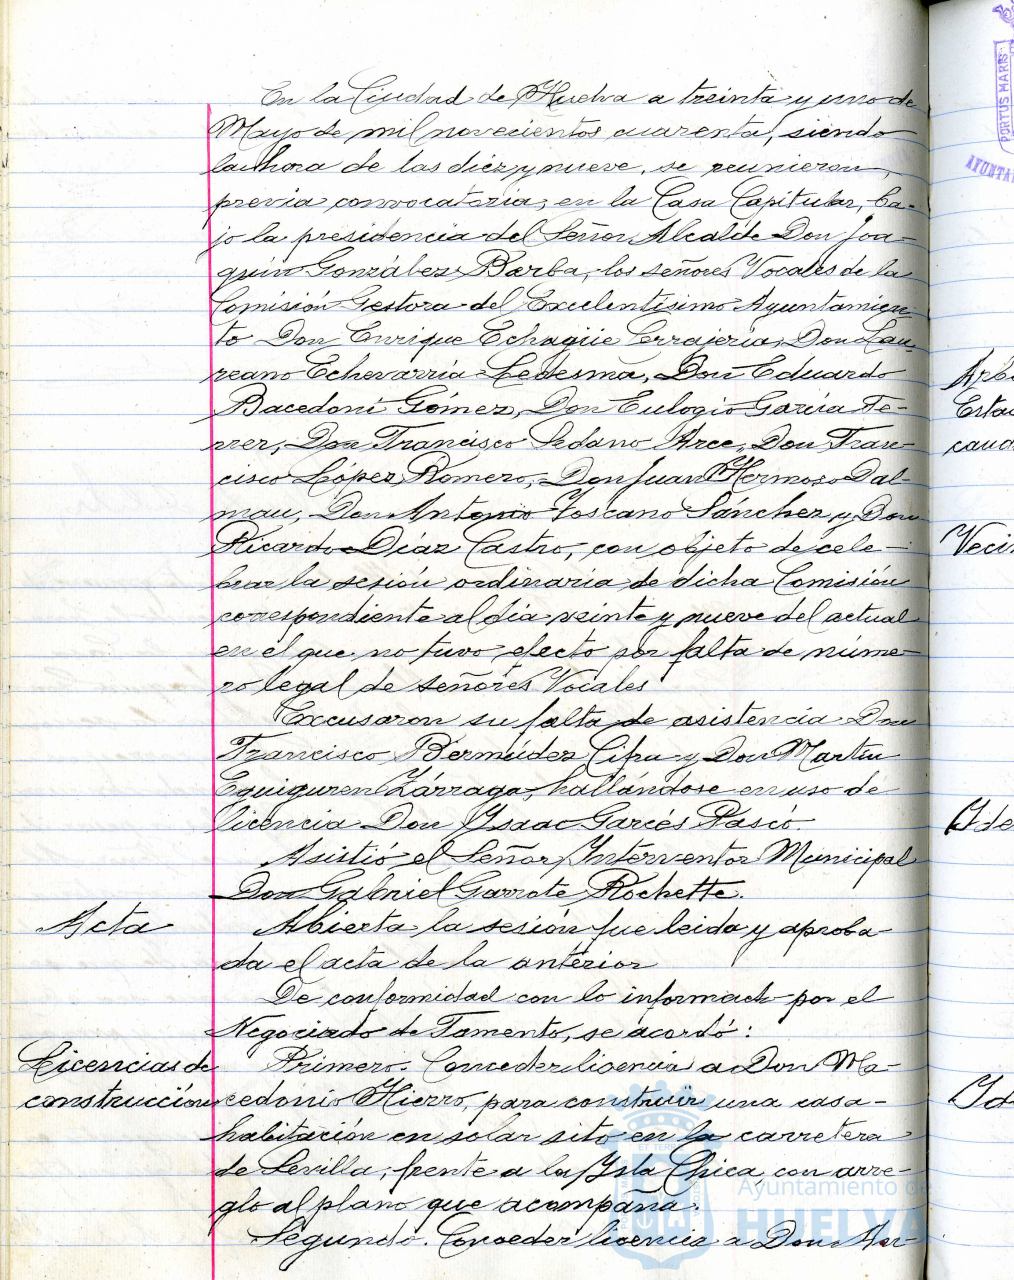 En la Ciudad de Huelva a treinta y uno de
Mayo de mil novecientos cuarenta, siendo
la hora de las diez y nueve, se reunieron,
previa convocatoria, en la Casa Capitular, ba-
jo la presidencia del Señor Alcalde Don Joa-
quin González Barba, los señores Vocales de la
Comisión Gestora del Excelentísimo Ayuntamien-
to Don Enrique Echagüe Errajeria, Don Lau-
reano Echevarría Ledesma, Don Eduardo
Bacedoni Gómez, Don Eulogio García Fe-
rrer, Don Francisco Sedano Arce, Don Fran-
cisco López Romero, Don Juan Hermoso Dal-
mau, Don Antonio Toscano Sánchez y Don
Ricardo Díaz Castro, con objeto de cele-
brar la sesión ordinaria de dicha Comisión
correspondiente al día veinte y nueve del actual
en el que no tuvo efecto por falta de núme-
ro legal de señores Vocales
Excusaron su falta de asistencia Don
Francisco Bermúdez Cifra y Don Martín
Eguiguren Zárraga, hallándose en uso de
licencia Don Ysaac Garcés Rascó.
Asistió el Señor Interventor Municipal
Don Gabriel Garrote Rochette.
Acta
Abierta la sesión fue leida y aproba-
da el acta de la anterior
De conformidad con lo informado por el
Negociado de Fomento, se acordó:
Licencias de
construcción
Primero. Conceder licencia a Don Ma-
cedonio Hierro, para construir una casa-
habitación en solar sito en la carretera
de Sevilla, frente a la Ysla Chica, con arre-
glo al plano que acompaña.
Segundo. Conceder licencia a Don Her-
PORTUS MARIS
Vecin
Yde
Yde
Ayuntamiento de
HUELVA